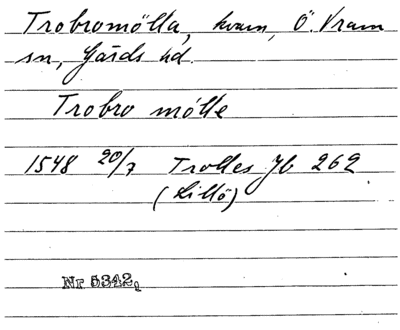 Trobromölla, kvarn, Ö. Vram
sn, Gärds hd.
Trobro mölle
1548 20/7 Trolles Jb 262
(Lillö)
Nr 5342